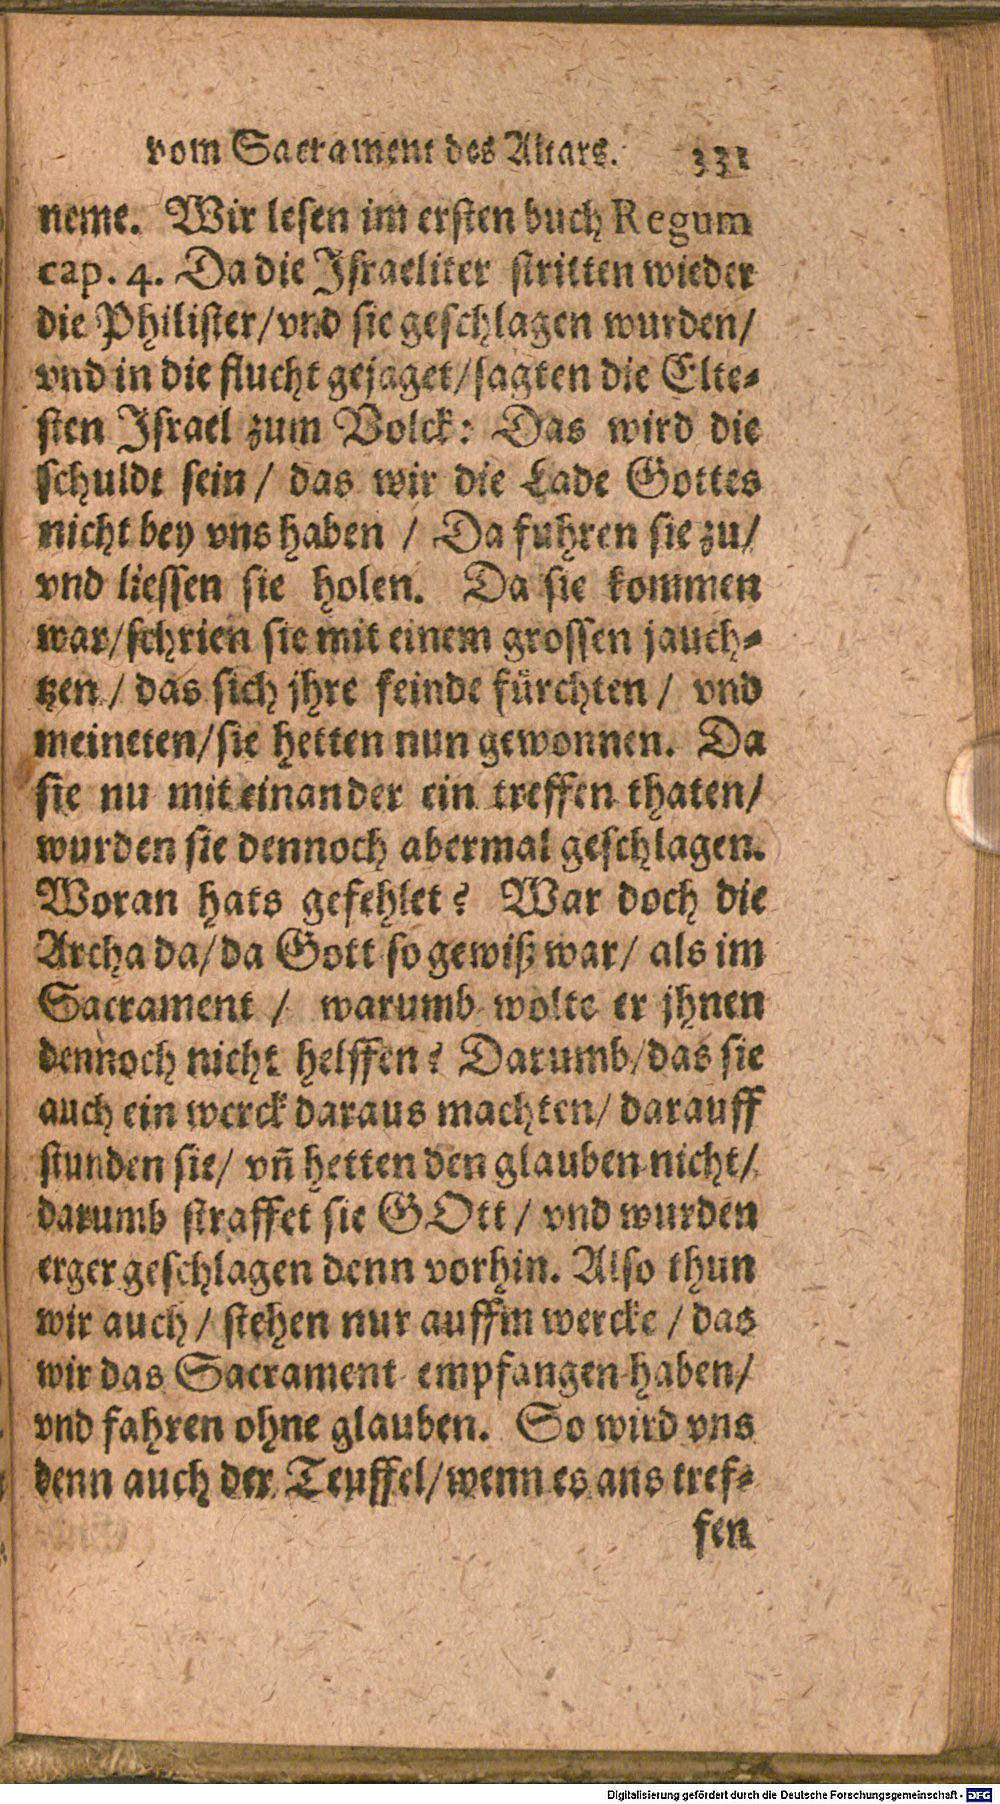 vom Sacrament des Altars. 331
neme. Wir lesen im ersten buch Regum
cap. 4. Da die Israeliter stritten wieder
die Philister/vnd sie geschlagen wurden/
vnd in die flucht gejaget/sagten die Elte-
sten Israel zum Volck: Das wird die
schuldt sein/ das wir die Lade Gottes
nicht bey vns haben / Da fuhren sie zu/
vnd liessen sie holen. Da sie kommen
war/schrien sie mit einem grossen jauch-
tzen/ das sich jhre feinde fürchten / vnd
meineten/sie hetten nun gewonnen. Da
sie nu mit einander ein treffen thaten/
wurden sie dennoch abermal geschlagen.
Woran hats gefehlet? War doch die
Archa da/da Gott so gewiß war/ als im
Sacrament / warumb wolte er jhnen
dennoch nicht helffen? Darumb/das sie
auch ein werck daraus machten/ darauff
stunden sie/ vñ hetten den glauben nicht/
darumb straffet sie GOtt/ vnd wurden
erger geschlagen denn vorhin. Also thun
wir auch/ stehen nur auffm wercke / das
wir das Sacrament empfangen haben/
vnd fahren ohne glauben. So wird vns
denn auch der Teuffel/wenn es ans tref-
fen
Digitalisierung gefördert durch die Deutsche Forschungsgemeinschaft - DFG